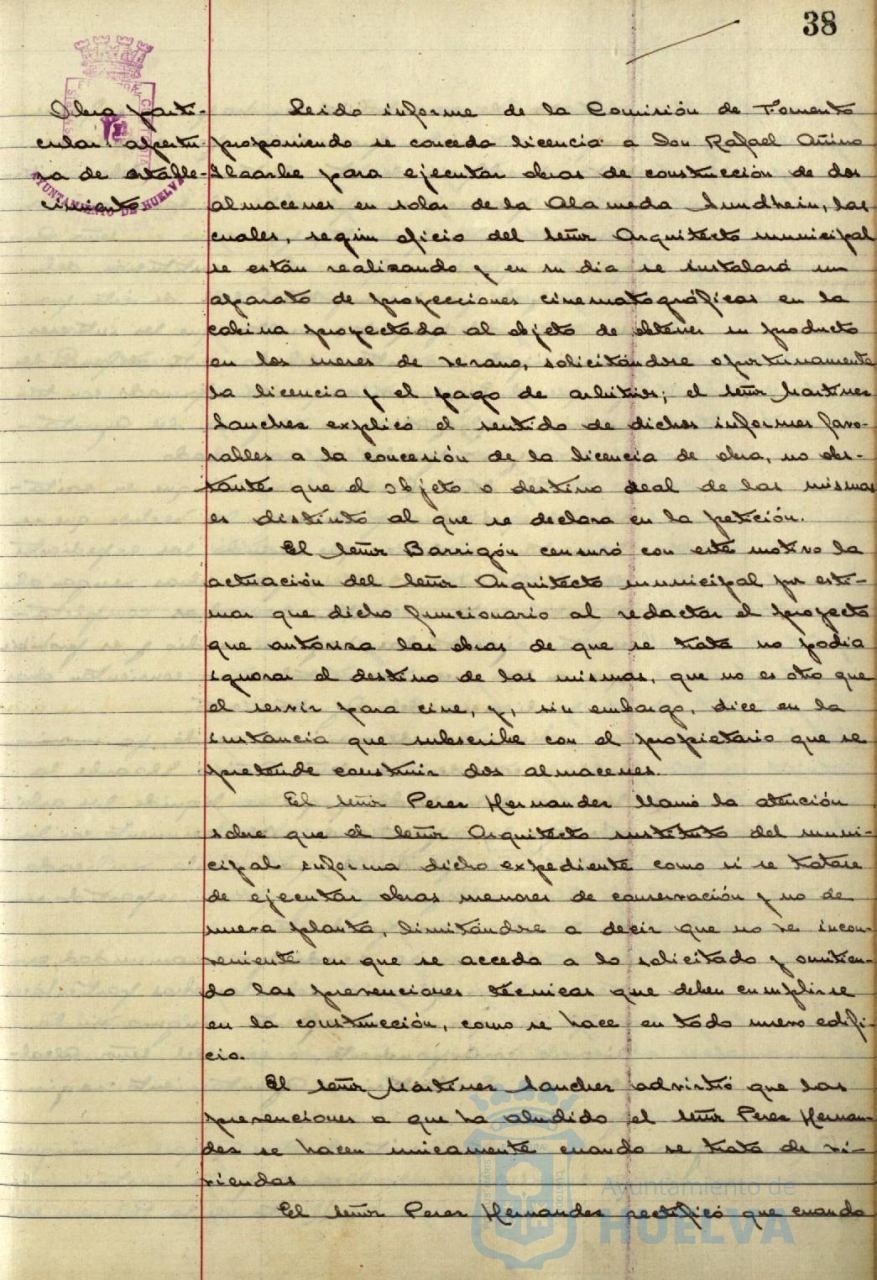 38
Obra parti-
cular apertu-
ra de estable-
cimiento
AYUNTAMIENTO DE HUELVA
Leido informe de la Comisión de Fomento
proponiendo se conceda licencia a Don Rafael Añino
Ilzarbe para ejecutar obras de construcción de dos
almacenes en solar de la Alameda Sundhein, las
cuales, según oficio del Señor Arquitecto municipal
se están realizando y en su dia se instalará un
aparato de proyecciones cinematográficas en la
cabina proyectada al objeto de obtener su producto
en los meses de verano, solicitándose oportunamente
la licencia y el pago de arbitrios; el Señor Martinez
Sanchez explicó el sentido de dichos informes favo-
rables a la concesión de la licencia de obra, no obs-
tante que el objeto o destino real de las mismas
es distinto al que se declara en la petición.
El Señor Barrigón censuró con este motivo la
actuación del Señor Arquitecto municipal por esti-
mar que dicho funcionario al redactar el proyecto
que autoriza las obras de que se trata no podia
ignorar el destino de las mismas, que no es otro que
el servir para cine, y, sin embargo, dice en la
instancia que subscribe con el propietario que se
pretende construir dos almacenes.
El Señor Perez Hernandez llamó la atención
sobre que el Señor Arquitecto sustituto del muni-
cipal informa dicho expediente como si se tratase
de ejecutar obras menores de conservación y no de
nueva planta, limitándose a decir que no ve incon-
veniente en que se acceda a lo solicitado y omitien-
do las prevenciones técnicas que deben cumplirse
en la construcción, como se hace en todo nuevo edifi-
cio.
El Señor Martinez Sanchez advirtió que las
prevenciones a que ha aludido el Señor Perez Hernan-
dez se hacen unicamente cuando se trata de vi-
viendas
El Señor Perez Hernandez rectificó que cuando
Ayuntamiento de
HUELVA